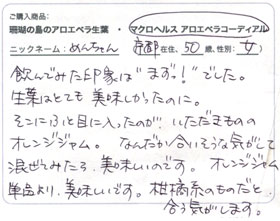 ご購入商品:
珊瑚の島のアロエベラ生葉 ・ マクロヘルス アロエベラコーディアル
ニックネーム:めんちゃん 京都在住、50歳、性別:女)
飲んでみた印象は"まずっ!"でした。
生葉はとても美味しかったのに。
そこにふと目に入ったのが!! いただきもの
オレンジジャム。なんだか合いそうな気がして
混ぜてみたら、美味しいのです。オレンジジャム
単品より、美味しいです。柑橘系のものだと
合う気がします。